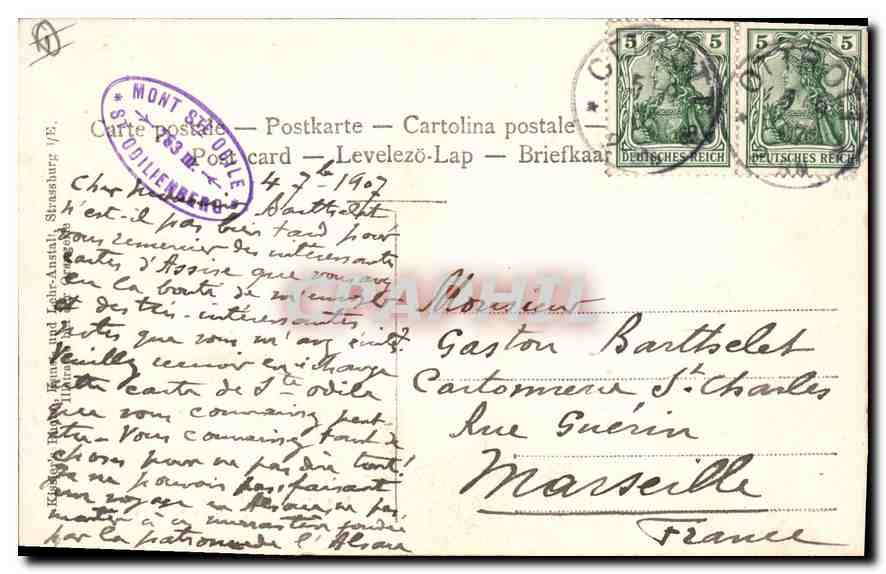 5 5 5 5
DEUTSCHES REICH DEUTSCHES REICH
MONT STE ODILE
763 m.
* ST. ODILIENBERG *
Carte postale — Postkarte — Cartolina postale —
Post card — Levelezö-Lap — Briefkaar
4 7bre 1907
Cher Barthelet
n'est-il pas bien tard pour
vous remercier des intéressantes
cartes d'Assise que vous avez
eu la bonté de m'envoyer
et des très-intéressantes
notes que vous m'avez
Veuillez recevoir en échange
carte de Ste odile
que vous connaissez peut-
être - Vous connaissez tant de
choses pour ne pas dire tout!
Je ne pouvais pas faisant
un voyage en Alsace ne pas
monter à ce monastère fondé
par la patronne de l'Alsace
Monsieur
Gaston Barthelet
Cartonnerie St. Charles
Rue Guérin
Marseille
France
Kunst- und Lehr-Anstalt, Strassburg i/E.
CRAPHIL